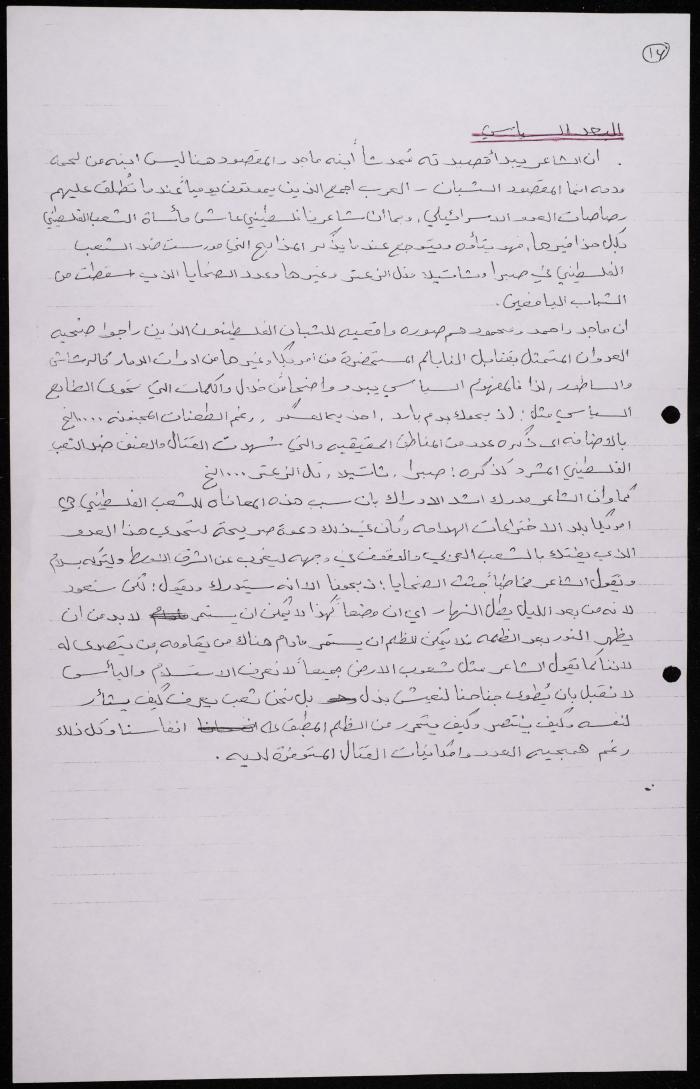 ١٤
البعد السياسي
. ان الشاعر يبدأ قصيدته مُحدثاً أبنه ماجد والمقصود هنا ليس ابنه من لحمه
ودمه انما المقصود الشبان - العرب اجمع الذين يموتون يومياً عندما تُطلق عليهم
رصاصات العدو الاسرائيلي، وبما ان شاعرنا فلسطيني عاش مأساة الشعب الفلسطيني
بكل حذافيرها، فهو يتأوه ويتوجع عندما يذكر المذابح التي مورست ضد الشعب
الفلسطيني في صبرا وشاتيلا وتل الزعتر وغيرها وعدد الضحايا الذي سقطت من
الشباب اليافعين.
ان ماجد واحمد ومحمود هم صوره واقعيه للشبان الفلسطينون الذين راحوا ضحيه
العدوان المتمثل بقنابل النابالم المستحضرة من امريكا وغيرها من ادوات الدمار كالرشاش
والساطور، لذا فالمفهوم السياسي يبدو واضحاً من خلال والكلمات التي تحوي الطابع
السياسي مثل: اذ يمحوك بدم بارد، احذيه العسكر، رغم الطعنات المجنونه ....الخ
بالاضافه الى ذكره عدد من المناطق الحقيقيه والتي شهدت القتال والعنف ضد الشعب
الفلسطيني المشرد كذكره: صبرا، شاتيلا، تل الزعتر ...الخ
كما وان الشاعر مدرك اشد الادراك بان سبب هذه المعاناه للشعب الفلسطيني هي
امريكا بلد الاختراعات الهدامه وكان في ذلك دعوة صريحة لتحدي هذا العدو
الذي يفتك بالشعب العربي والوقوف في وجهه ليغرب عن الشرق الاوسط وليتركه بسلام
ويقول الشاعر مخاطباً جثث الضحايا: ذبحونا الا انه سيتدرك ويقول: لكن سنعود
لانه من بعد الليل يطل النهار اي ان وضعاً كهذا لا يمكن ان يستمر لا بد من ان
يظهر النور بعد الظلمه فلا يمكن للظلم ان يستمر مادام هناك من يقاومه ومن يتصدى له
لاننا كما يقول الشاعر مثل شعوب الارض جميعاً لا نعرف الاستسلام واليأس
لا نقبل بان يُطوى جناحنا لنعيش بذل بل نحن شعب يعرف كيف يثأر
لنفسه وكيف ينتصر وكيف يتحرر من الظلم المطبق على انفاسنا وكل ذلك
رغم همجيه العدو وامكانيات القتال المتوفرة لديه.